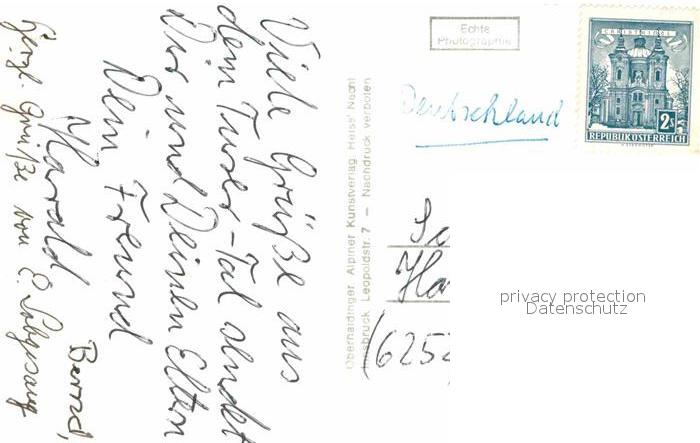 Viele Grüße aus
dem Tuxer-Tal sendet
Dir und Deinen Eltern
Dein Freund
Harald
Bernd,
Herzl. Grüße von E.
Oberhaidinger Alpiner Kunstverlag "Heiss" Nachf.
Innsbruck Leopoldstr. 7 — Nachdruck verboten
Echte
Photographie
Deutschland
CHRISTKINDL
2s
REPUBLIK ÖSTERREICH
(625
privacy protection
Datenschutz